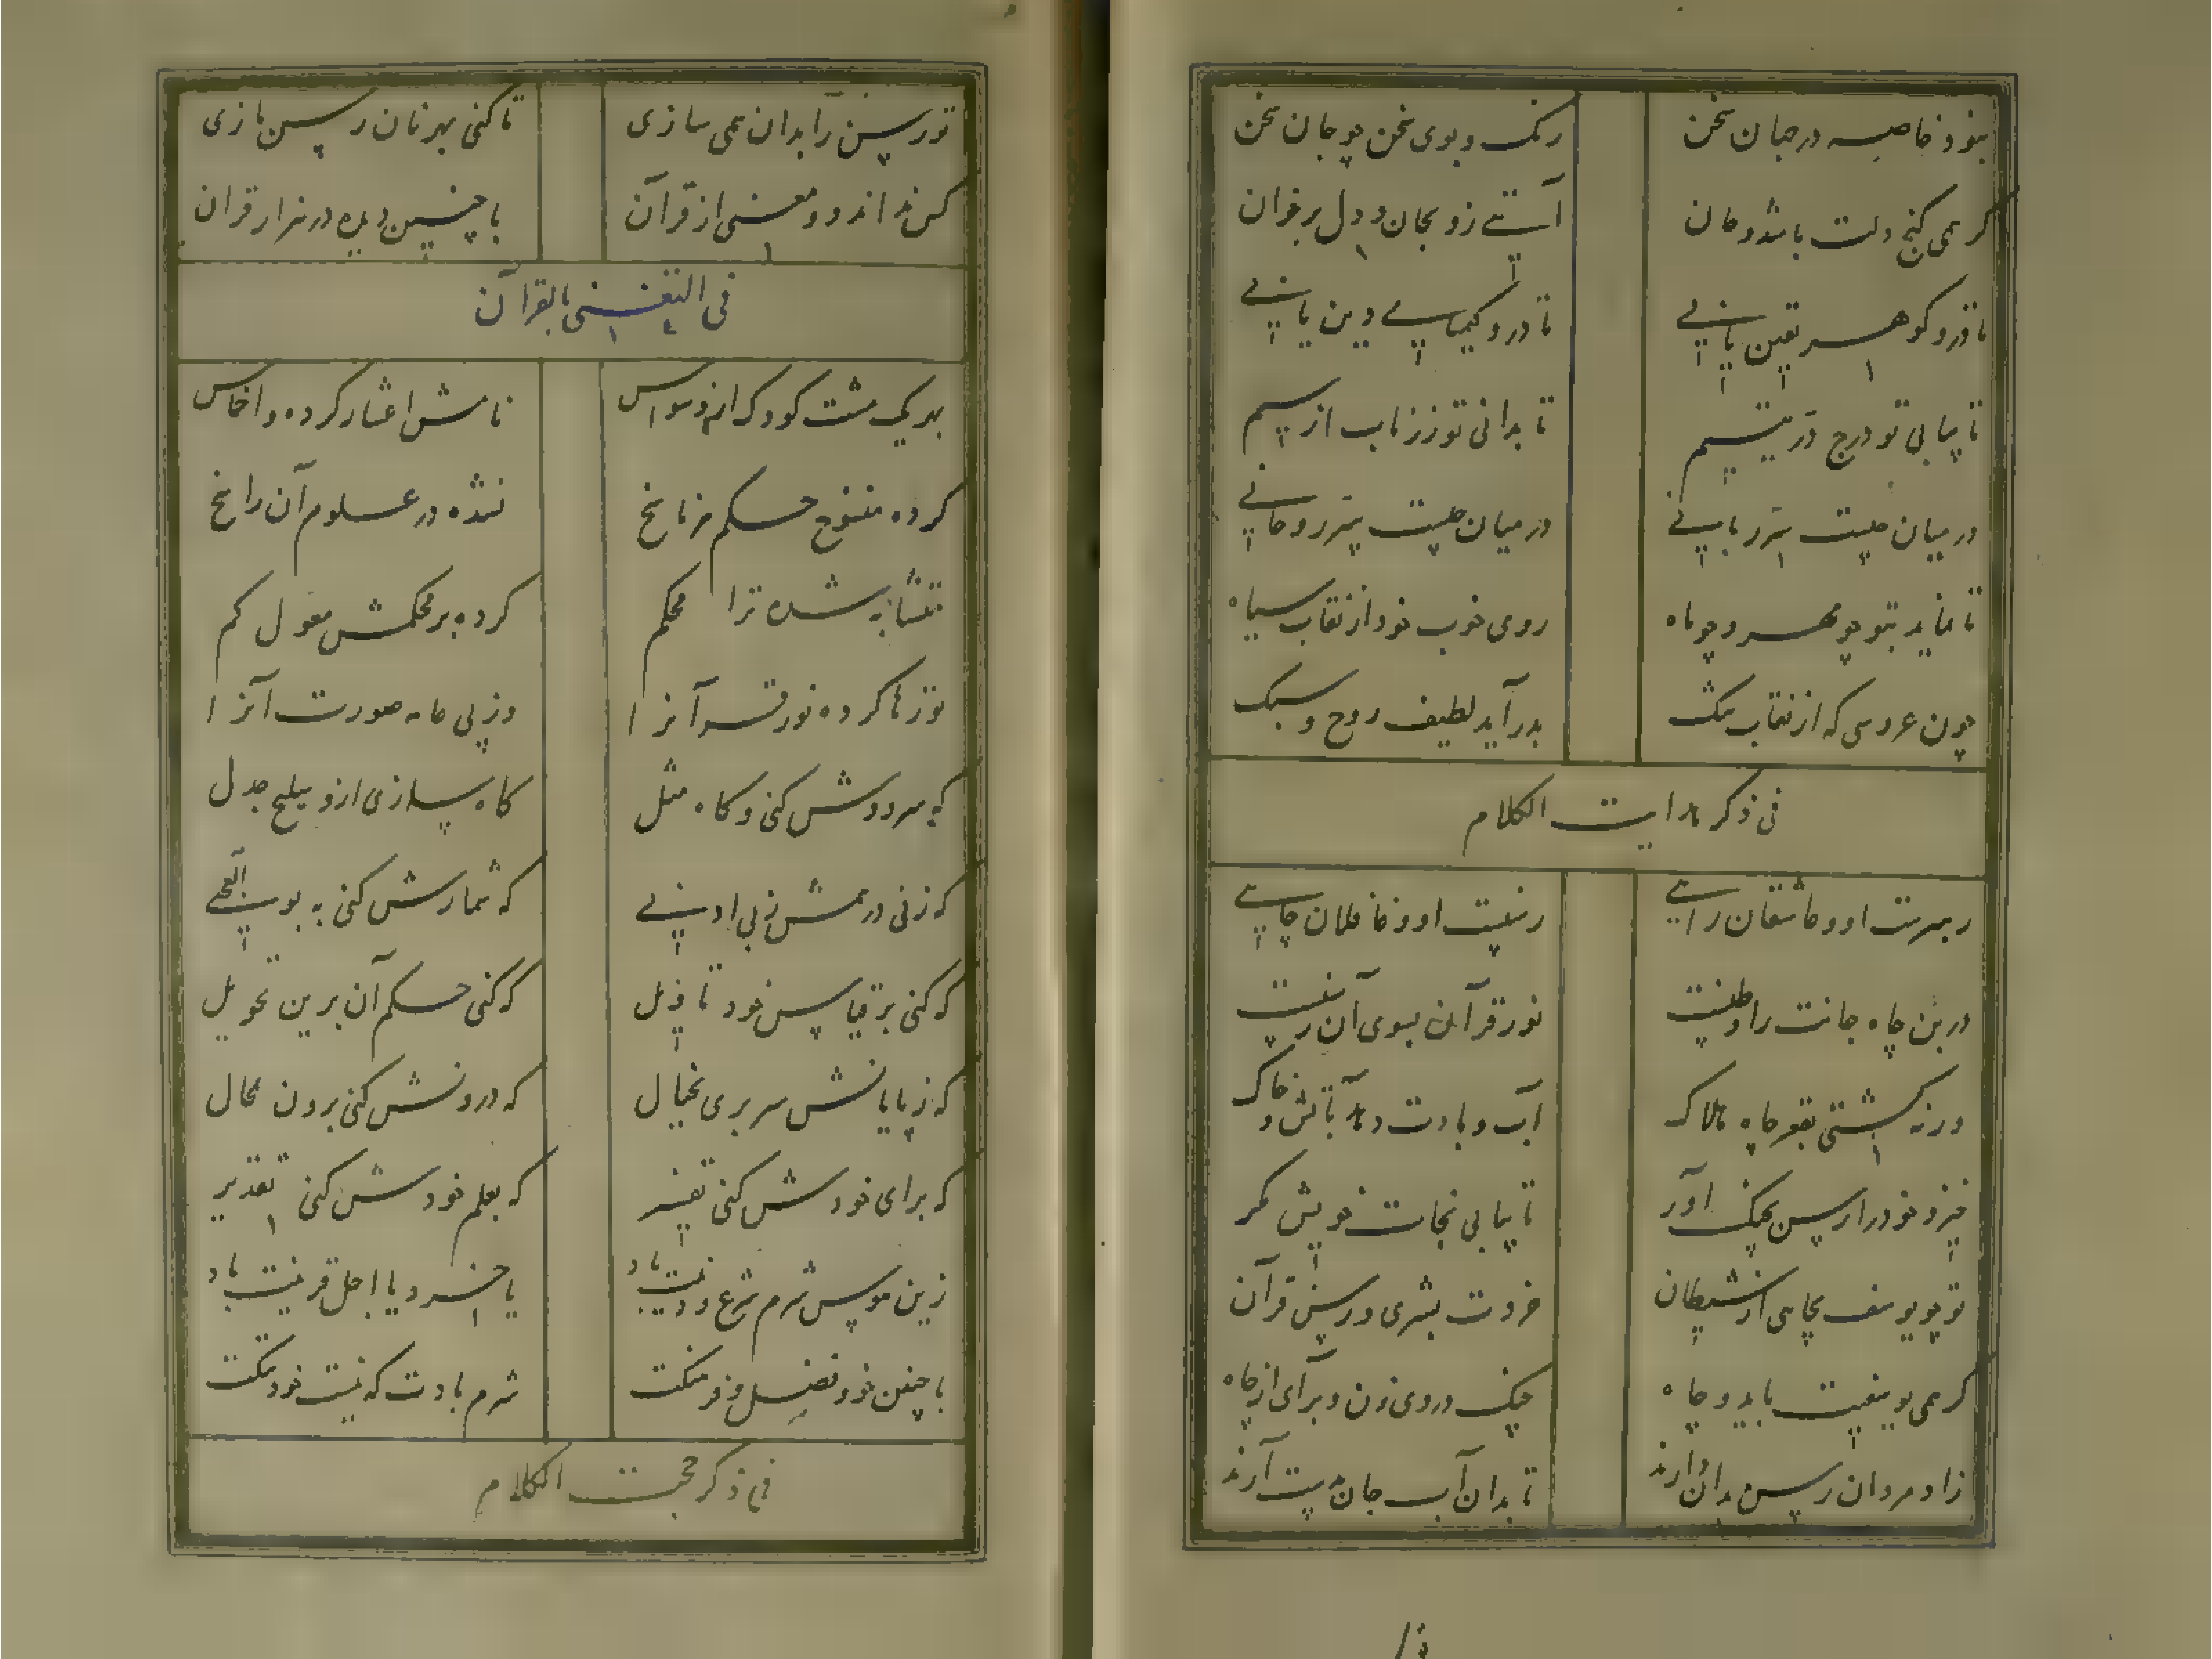 بنود خاصه در جهان سخن رنک و بوی سخن چو جان سخن
کر همی کنج دلت باشد و جان آیتی زو بجان و دل برخوان
تا درو کوهر یقین یابی تا درو کیمیای دین یابی
تا بیابی تو درج در یتیم تا بدانی تو زر ناب از سیم
در میان چیست سر ربانی در میان چیست سر روحانی
تا نماید بتو چو مهر و چو ماه روی خوب خود از نقاب سیاه
چون عروسی که از نقاب تنک بدر آید لطیف روح و سبک
فی ذکر هدایت الکلام
رهبرست او و عاشقان راهی رسنیست او و غافلان چاهی
در بن چاه جانت را وطنیست نور قرآن بسوی آن رسنیست
ورنه کشتی بقعر چاه هلاک آب و بادت دهد بآتش و خاک
خیز و خود را رسن بچنک آور تا بیابی نجات خویش مکر
تو چو یوسف بچاهی از شیطان خردت بشری و رسن قرآن
کر همی یوسفیت باید و چاه چنک در وی زن و برآی از چاه
زاد مردان رسن بدان دارند تا بدان آب جان بدست آرند
تو رسن را بدان همی سازی تا کنی بهر نان رسن بازی
کس نداند دو معنی از قرآن با چنین دیده در هزار قران
فی التغنی بالقرآن
بهر یک مشت کودک از وسواس نامش اعشار کرده و اخماس
کرده منسوخ حکم هر ناسخ نشده در علوم آن راسخ
متشابه شده ترا محکم کرده بر محکمش معول کم
تو رها کرده نور قرآنرا وز پی عامه صورت آنرا
که سرودش کنی و کاه مثل کاه سازی ازو سلیح جدل
که زنی در همش ز بی ادبی که شمارش کنی به بوالعجبی
که کنی بر قیاس خود تاویل که کنی حکم آن برین تحویل
که ز پایانش سر بری بخیال که درونش کنی برون محال
که برای خودش کنی تفسیر که بعلم خودش کنی تقدیر
زین هوس شرم شرع و دینت باد یا خرد یا اجل قرینت باد
با چنین خو و فضل و فرهنکت شرم بادت که نیست خود ننکت
فی ذکر حجت الکلام